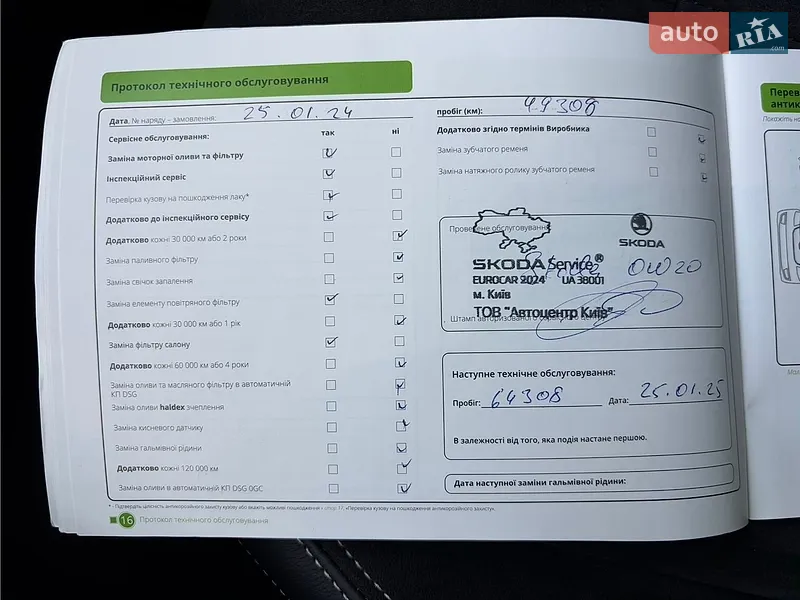 auto RIA.com
Протокол технічного обслуговування
Дата, № наряду – замовлення: 25.01.24
Сервісне обслуговування: так ні
Заміна моторної оливи та фільтру
Інспекційний сервіс
Перевірка кузову на пошкодження лаку*
Додатково до інспекційного сервісу
Додатково кожні 30 000 км або 2 роки
Заміна паливного фільтру
Заміна свічок запалення
Заміна елементу повітряного фільтру
Додатково кожні 30 000 км або 1 рік
Заміна фільтру салону
Додатково кожні 60 000 км або 4 роки
Заміна оливи та масляного фільтру в автоматичній
КП DSG
Заміна оливи haldex зчеплення
Заміна кисневого датчику
Заміна гальмівної рідини
Додатково кожні 120 000 км
Заміна оливи в автоматичній КП DSG 0GC
* - Підтвердіть цілісність антикорозійного захисту кузову або вкажіть можливі пошкодження - стор. 17, «Перевірка кузову на пошкодження антикорозійного захисту».
16 Протокол технічного обслуговування
пробіг (км): 49308
Додатково згідно термінів Виробника
Заміна зубчатого ременя
Заміна натяжного ролику зубчатого ременя
Проведене обслуговування:
SKODA
SKODA Service®
EUROCAR 2024 UA 38001
м. Київ
ТОВ "Автоцентр Київ"
0W20
Штамп авторизованого сервісного центру
Наступне технічне обслуговування:
Пробіг: 64308 Дата: 25.01.25
В залежності від того, яка подія настане першою.
Дата наступної заміни гальмівної рідини:
Перев
антик
Покажіть на